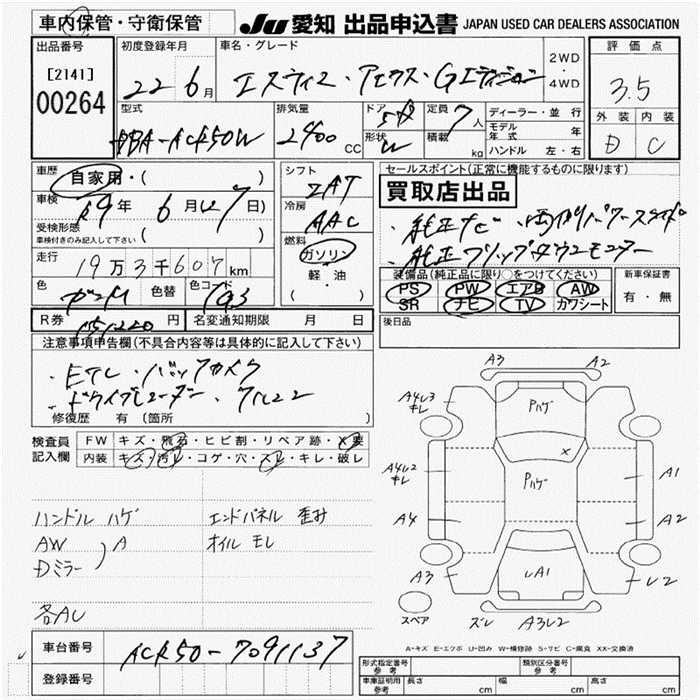 車内保管・守衛保管
JU 愛知 出品申込書 JAPAN USED CAR DEALERS ASSOCIATION
出品番号 初度登録年月 車名・グレード 2WD・4WD 評価点
[2141]
00264
22 6月
エスティマ・アエラス・Gエディション
3.5
外装 内装
D C
型式 排気量 ドア 形状 定員 積載 ディーラー・並行
DBA-ACR50W 2400CC 5D W 7人 kg
モデル年式 年
ハンドル 左・右
車歴 自家用・( )
シフト
IAT
セールスポイント(正常に機能するものに限ります)
買取店出品
車検 R9年6月(27日)
冷房
AAC
・純正ナビ ・両側パワースライド
・純正フリップダウンモニター
受検形態 ( )
車検付きのみ記入して下さい
燃料
ガソリン
軽・油
( )
走行 19万3千607km
装備品(純正品に限り○をつけてください) 新車保証書
PS PW エアB AW 有・無
SR ナビ TV カワシート
色 色替 色コード
R券 円 名変通知期限 月 日
後日品
注意事項申告欄(不具合内容等は具体的に記入して下さい)
・ETC・バックカメラ
・ドライブレコーダー
修復歴 有 (箇所 )
検査員記入欄
FW キズ・飛石・ヒビ割・リペア跡・X要
内装 キズ・汚レ・コゲ・穴・スレ・キレ・破レ
ハンドル ハゲ エンドパネル 歪み
AW A オイル モレ
Dミラー
A3 A2
A4レ3
キレ
Pハゲ
X
A4レ2
キレ
Pハゲ
A1
A4
A2
A3
レA1
レ2
スペア ズレ A3レ2
A-キズ E-エクボ U-凹み W-補修跡 S-サビ C-腐食 XX-交換済
車台番号 ACR50-7091137
登録番号
形式指定番号 参考 類別区分番号 参考
車庫証明用 参考 長さ cm 幅 cm 高さ cm